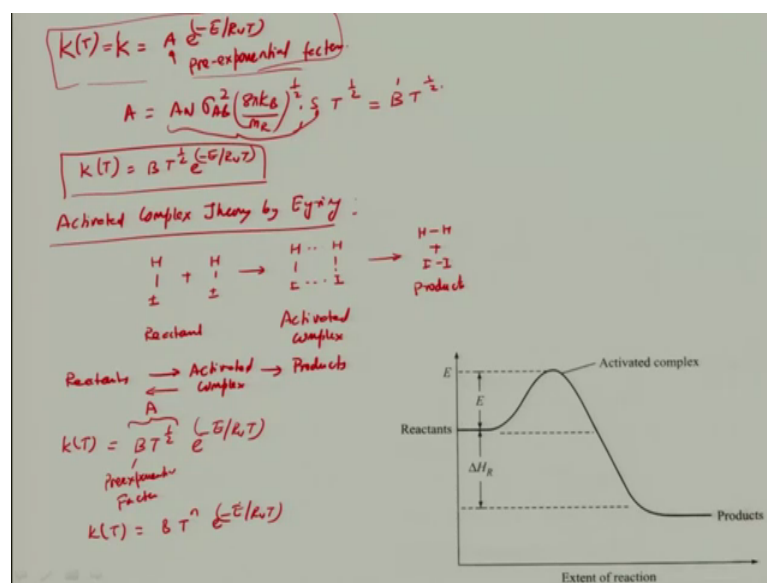 K(T) = K = A e^(-E/RuT)
Pre-exponential factor
A = AN σAB^2 (8πkB/mR)^1/2 · S T^1/2 = B' T^1/2.
K(T) = B T^1/2 e^(-E/RuT)
Activated Complex Theory by Eyring :
H H H ·· H H-H
| + | → | | → +
I I I ... I I-I
Product
Reactant Activated Complex
Reactants ⇄ Activated Complex → Products
A
K(T) = B T^1/2 e^(-E/RuT)
Preexponential
Factor
K(T) = B T^n e^(-E/RuT)
Activated complex
E
E
Reactants
ΔHR
Products
Extent of reaction